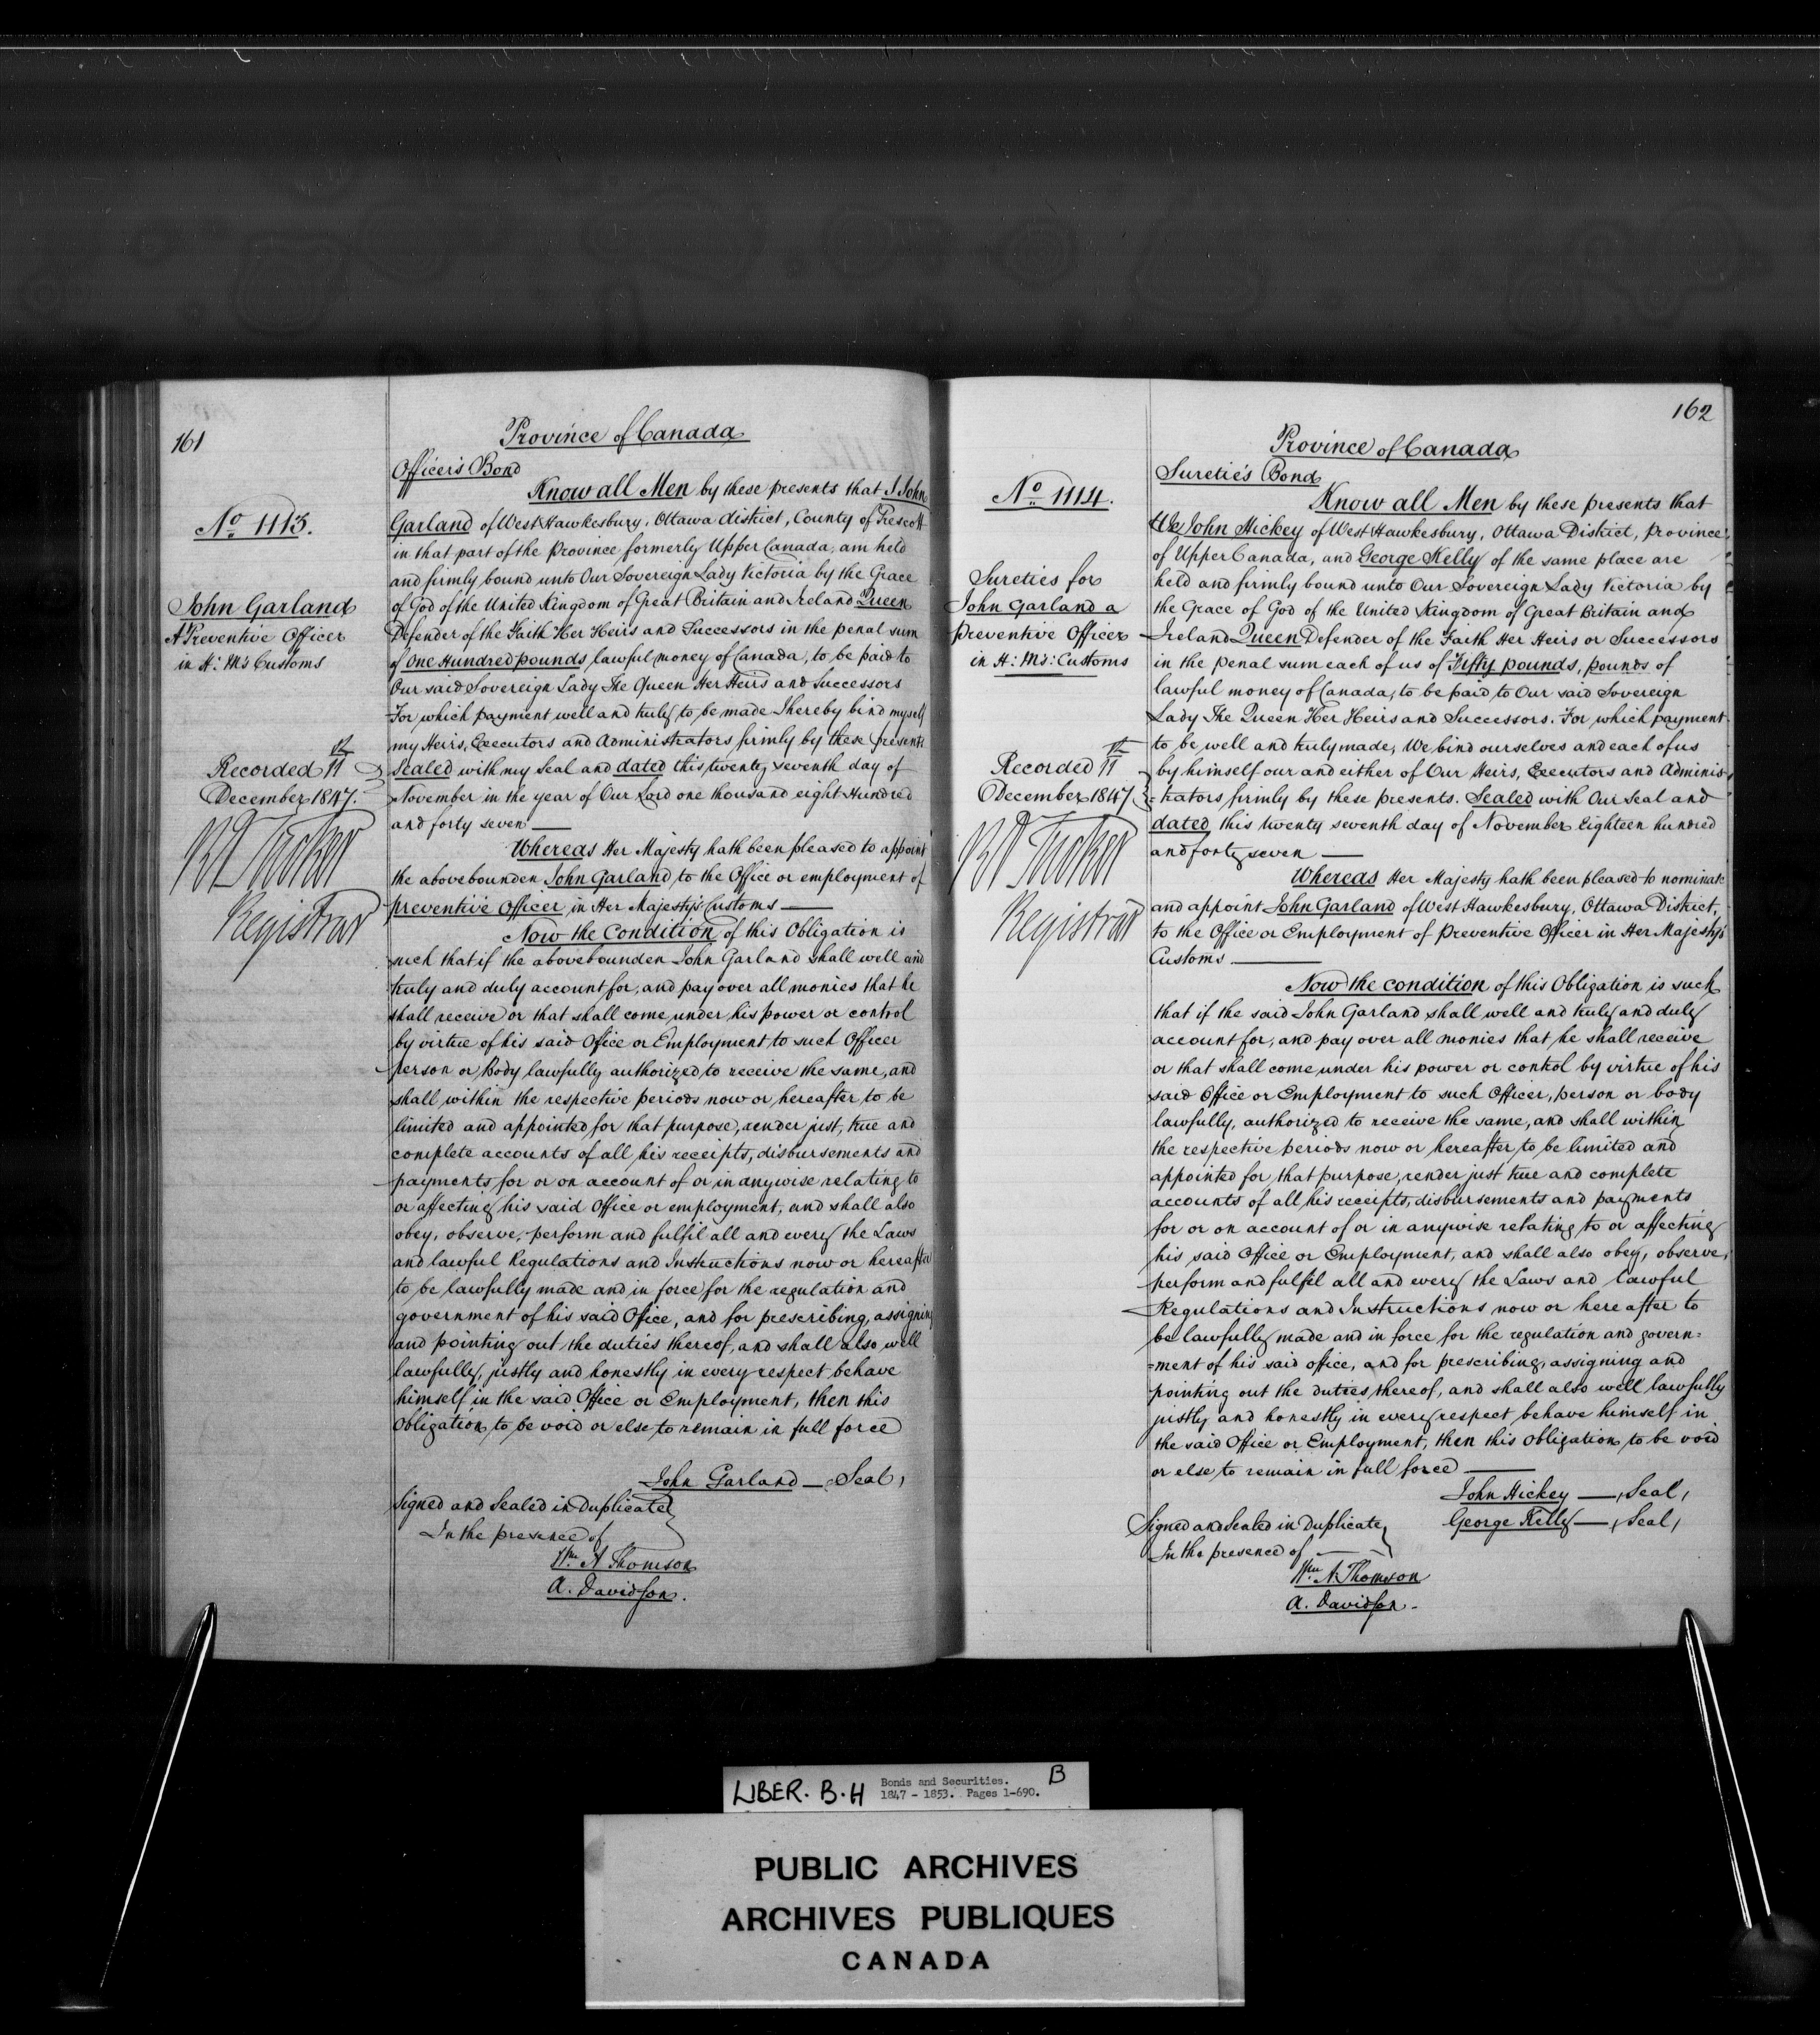 161
Province of Canada
Officer's Bond
Know all Men by these presents that I John
Garland of West Hawkesbury, Ottawa district, County of Prescott
in that part of the Province formerly Upper Canada, am held
and firmly bound unto Our Sovereign Lady Victoria by the Grace
of God of the United Kingdom of Great Britain and Ireland Queen
Defender of the Faith Her Heirs and Successors in the penal sum
of One Hundred pounds lawful money of Canada, to be paid to
Our said Sovereign Lady The Queen Her Heirs and Successors
For which payment well and truly to be made I hereby bind myself
my Heirs, Executors and Administrators firmly by these presents
Sealed with my Seal and dated this twenty seventh day of
November in the year of Our Lord one thousand eight Hundred
and forty seven —
Whereas Her Majesty hath been pleased to appoint
the abovebounden John Garland to the Office or employment of
preventive Officer in Her Majesty's Customs —
Now the Condition of this Obligation is
such that if the abovebounden John Garland shall well and
truly and duly account for, and pay over all monies that he
shall receive or that shall come under his power or control
by virtue of his said Office or Employment to such Officer
person or Body lawfully authorized to receive the same, and
shall within the respective periods now or hereafter to be
limited and appointed for that purpose, render just, true and
complete accounts of all his receipts, disbursements and
payments for or on account of or in anywise relating to
or affecting his said Office or employment, and shall also
obey, observe, perform and fulfil all and every the Laws
and lawful Regulations and Instructions now or hereafter
to be lawfully made and in force for the regulation and
government of his said Office, and for prescribing, assigning
and pointing out the duties thereof, and shall also well
lawfully, justly and honestly in every respect behave
himself in the said Office or Employment, then this
Obligation to be void or else to remain in full force
John Garland — Seal,
Signed and Sealed in Duplicate
In the presence of
Wm A Thomson
A. Davidson.
No 1113.
John Garland
A Preventive Officer
in H: M's Customs
Recorded 11th
December 1847.
Tucker
Registrar
162
Province of Canada
Suretie's Bond
Know all Men by these presents that
We John Hickey of West Hawkesbury, Ottawa District, Province
of Upper Canada, and George Kelly of the same place are
held and firmly bound unto Our Sovereign Lady Victoria by
the Grace of God of the United Kingdom of Great Britain and
Ireland Queen Defender of the Faith Her Heirs or Successors
in the penal sum each of us of Fifty pounds, pounds of
lawful money of Canada, to be paid to Our said Sovereign
Lady The Queen Her Heirs and Successors. For which payment
to be well and truly made, We bind ourselves and each of us
by himself our and either of Our Heirs, Executors and Adminis
=trators firmly by these presents. Sealed with Our Seal and
dated this twenty seventh day of November Eighteen hundred
and forty seven —
Whereas Her Majesty hath been pleased to nominate
and appoint John Garland of West Hawkesbury, Ottawa District,
to the Office or Employment of Preventive Officer in Her Majesty's
Customs —
Now the condition of this Obligation is such
that if the said John Garland shall well and truly and duly
account for, and pay over all monies that he shall receive
or that shall come under his power or control by virtue of his
said Office or Employment to such Officer, person or body
lawfully, authorized to receive the same, and shall within
the respective periods now or hereafter to be limited and
appointed for that purpose, render just true and complete
accounts of all his receipts, disbursements and payments
for or on account of or in anywise relating to or affecting
his said Office or Employment, and shall also obey, observe,
perform and fulfil all and every the Laws and lawful
Regulations and Instructions now or hereafter to
be lawfully made and in force for the regulation and govern=
=ment of his said office, and for prescribing, assigning and
pointing out the duties thereof, and shall also well lawfully
justly and honestly in every respect behave himself in
the said Office or Employment, then this Obligation to be void
or else to remain in full force —
John Hickey —, Seal,
George Kelly —, Seal,
Signed and Sealed in Duplicate
In the presence of —
Wm A. Thomson
A. Davidson.
No 1114.
Sureties for
John Garland a
preventive Officer
in H: M's: Customs
Recorded 11th
December 1847
Tucker
Registrar
LIBER. B.H Bonds and Securities. B
1847 - 1853. Pages 1-690.
PUBLIC ARCHIVES
ARCHIVES PUBLIQUES
CANADA